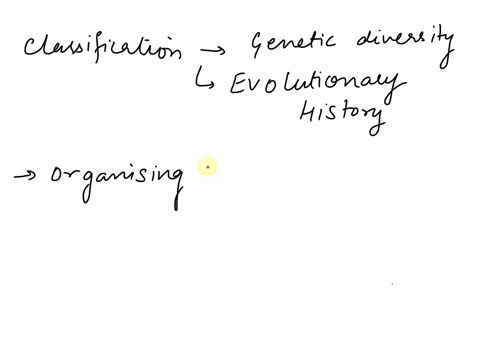 Classification → Genetic diversity
↳ Evolutionary
History
→ Organising